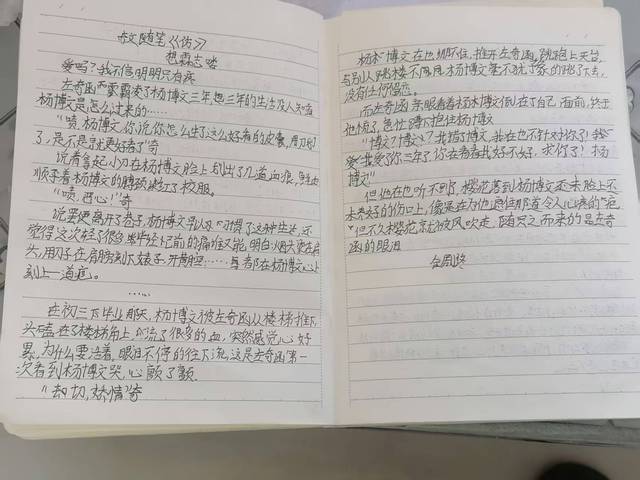 散文随笔《伤》
爱吗?我不信明明只有疼
左奇函严重霸凌了杨博文三年,想三年的生活没人知道
杨博文是怎么过来的……
"啧,杨博文,你说你怎么生了这么好看的皮囊,用刀划
了,是不是就更好看了"奇
说着拿起小刀在杨博文脸上划出了几道血痕,鲜血
顺着杨博文的脖颈 了校服。
"啧,恶心!"奇
说罢便离开了巷子,杨博文早以习惯了这种生活,还
觉得这次轻了很多 以前的痛谁又能明白,烟头烫在
头,用刀子在肩膀刻下 子,开 ……每都在杨博文心上
刻上一道疤。
……
在初三下毕业那天,杨博文被左奇函从楼梯推下,
头磕在了楼梯角上,流了很多的血,突然感觉心好
累,为什么要活着,眼泪不停的往下流,这是左奇函第一
次看到杨博文哭,心颤了颤.
"切,矫情"奇
杨博文在也绷不住,推开左奇函,跑上天台,
与别人跳楼不同,杨博文毫不犹豫的跳了下去,
没有任何
而左奇函亲眼看着杨博文倒在了自己面前,终于
他慌了,急忙蹲下抱住杨博文
"博文?博文?我 博文,我在也不针对你了!我
爱 我爱了你三年了,你在看看我好不好,求你了!杨
博文"
但他在也听不到了,樱花落到杨博文 脸上不
太好的伤口上,像是在为他遮住那道令人心疼的"疤
"但不久樱花就被风吹走,随只之而来的是左奇
函的眼泪